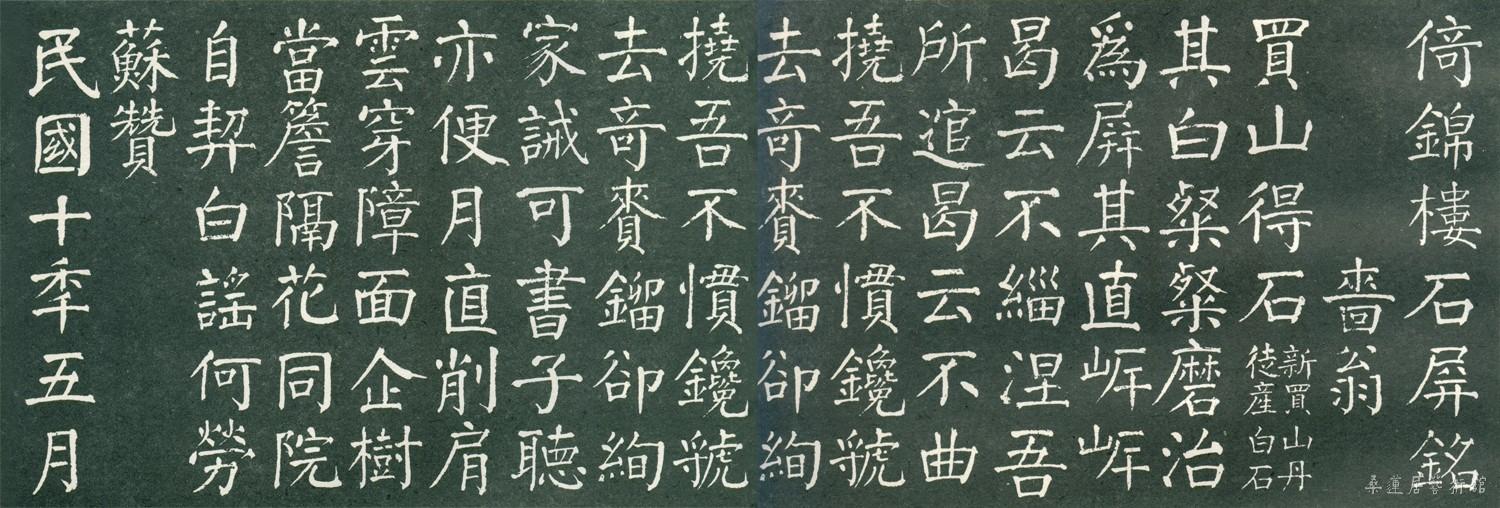 倚錦樓石屏銘
嗇翁
買山得石 新買山丹
徒産白石
其白粲粲磨治
爲屏其直
曷云不緇涅吾
所逭曷云不曲
撓吾不慣鑱虢
去竒賚鎦卻絢
撓吾不慣鑱虢
去竒賚鎦卻絢
家誡可書子聽
亦便月直削肩
雲穿障面企樹
當簷隔花同院
自契白謡何勞
蘇贊
民國十秊五月
桑蓮居藝術館